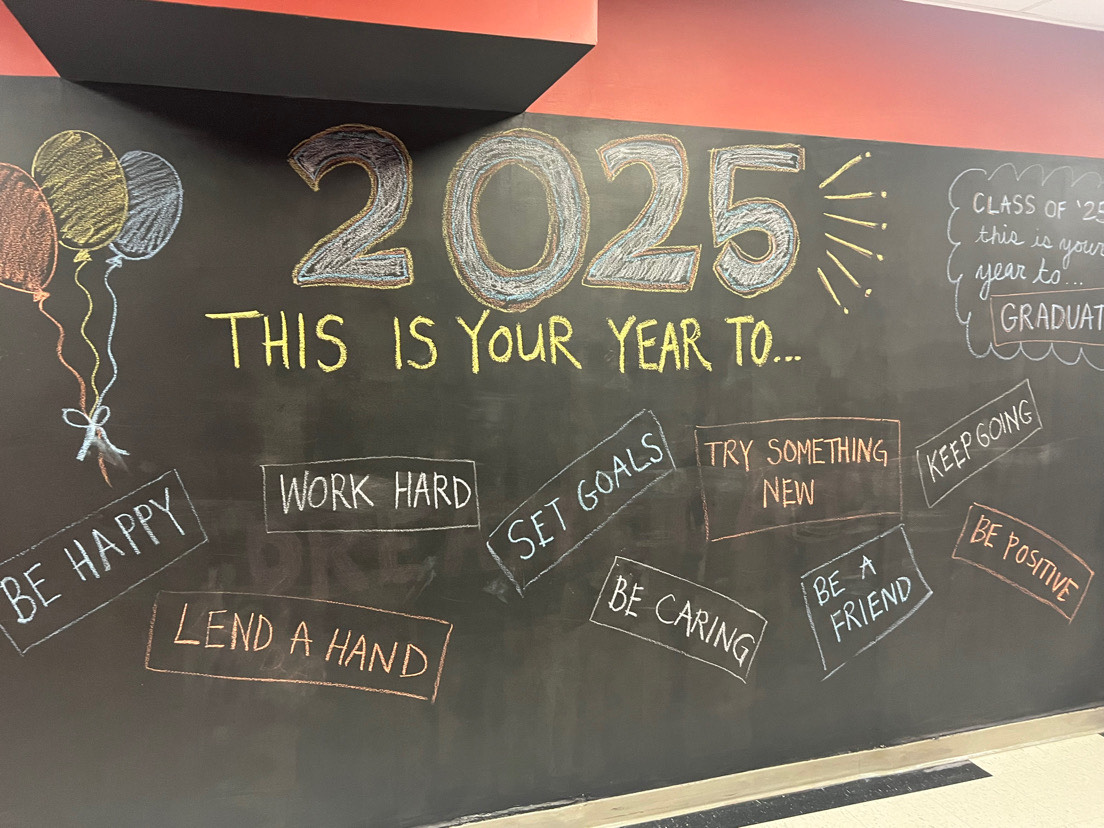 2025
THIS IS YOUR YEAR TO...
CLASS OF '25
this is your
year to...
BE HAPPY
WORK HARD
SET GOALS
TRY SOMETHING
NEW
KEEP GOING
LEND A HAND
BE CARING
BE A
FRIEND
BE POSITIVE